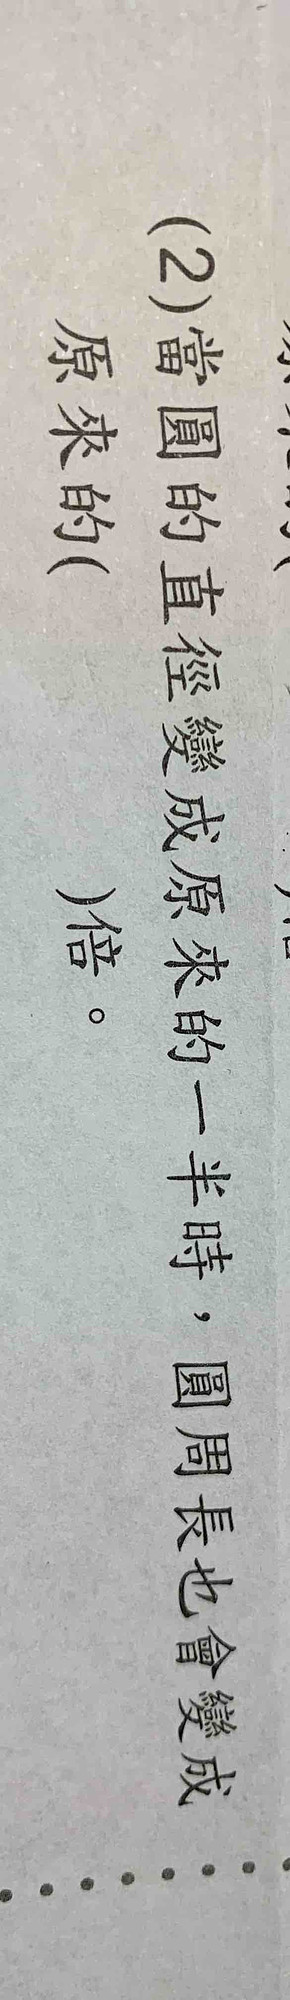 (2)當圓的直徑變成原來的一半時，圓周長也會變成
原來的(　　　)倍。